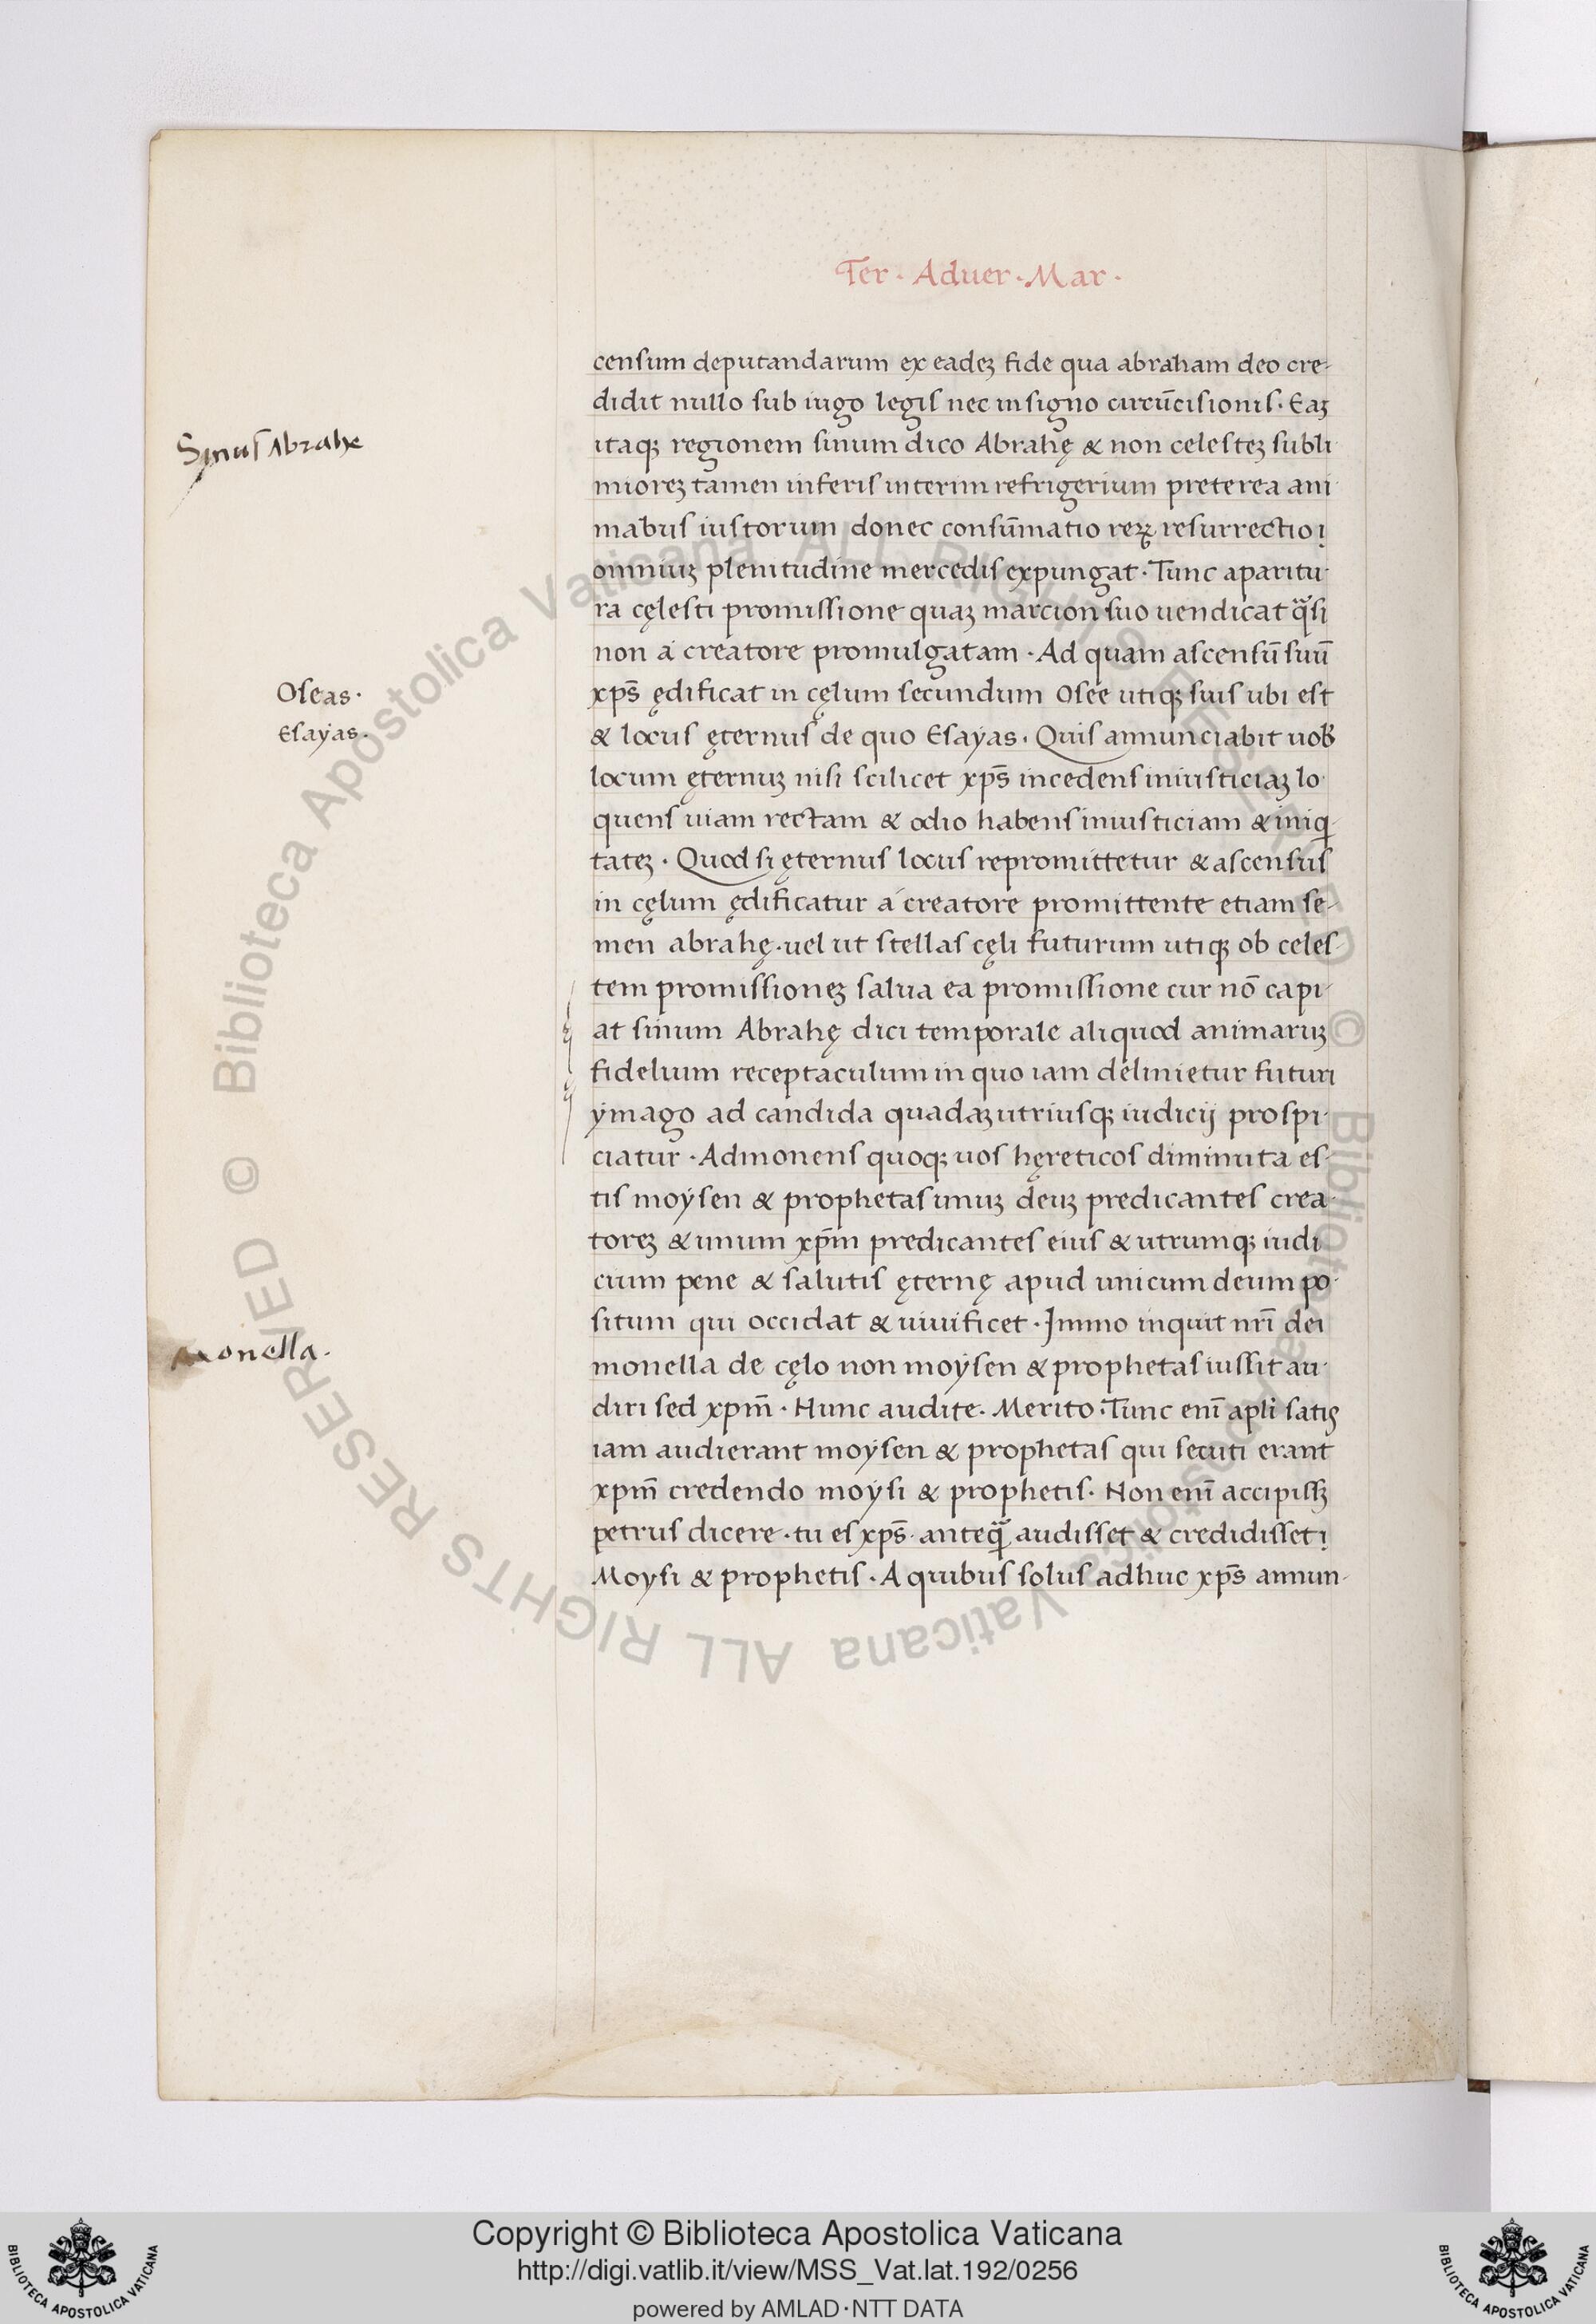 Ter · Aduer · Mar ·
censum deputandarum ex eadeꝫ fide qua abraham deo cre-
didit nullo sub iugo legis nec insigno circūcisionis · Eaꝫ
itaqꝫ regionem sinum dico Abrahę & non celesteꝫ subli
Sinus Abrahe
mioreꝫ tamen inferis interim refrigerium preterea ani
mabus iustorum donec consūmatio reꝝ resurrectioi
omniuꝫ plenitudine mercedis expungat · Tunc aparitu
ra cęlesti promissione quaꝫ marcion suo uendicat q̃si
non á creatore promulgatam · Ad quam ascensū suū
xp̄s ędificat in cęlum secundum Osée utiqꝫ suis ubi est
Oseas ·
& locus ęternus de quo Esayas · Quis annunciabit uob
Esayas ·
locum ęternuꝫ nisi scilicet xp̄s incedens iniusticiaꝫ lo
quens uiam rectam & odio habens iniusticiam & iniq
tateꝫ · Quod si ęternus locus repromittetur & ascensus
in cęlum ędificatur á creatore promittente etiam se-
men abrahę · uel ut stellas cęli futurum utiqꝫ ob celes-
tem promissioneꝫ salua ea promissione cur nō capi-
at sinum Abrahę dici temporale aliquod animaruꝫ
fidelium receptaculum in quo iam delinietur futuri
ymago ad candida quadaꝫ utriusqꝫ iudicij prospi
ciatur · Admonens quoqꝫ uos hęreticos diminuta es-
tis moysen & prophetas unuꝫ deuꝫ predicantes crea
toreꝫ & unum xp̄m predicantes eius & utrumqꝫ iudi
cium pene & salutis ęternę apud unicum deum po-
situm qui occidat & uiuificet · Immo inquit nr̄i dei
monella de cęlo non moysen & prophetas iussit au
monella ·
diri sed xpm̄ · Hunc audite · Merito · Tunc eni᷑ apli satis
iam audierant moysen & prophetas qui secuti erant
xpm̄ credendo moysi & prophetis · Non eni᷑ accipissꝫ
petrus dicere · tu es xp̄s · anteq̃ audisset & credidisset i
Moysi & prophetis · A quibus solus adhuc xp̄s annun-
© Biblioteca Apostolica Vaticana ALL RIGHTS RESERVED © Biblioteca Apostolica Vaticana ALL RIGHTS RESERVED
BIBLIOTECA APOSTOLICA VATICANA
Copyright © Biblioteca Apostolica Vaticana
http://digi.vatlib.it/view/MSS_Vat.lat.192/0256
powered by AMLAD·NTT DATA
BIBLIOTECA APOSTOLICA VATICANA